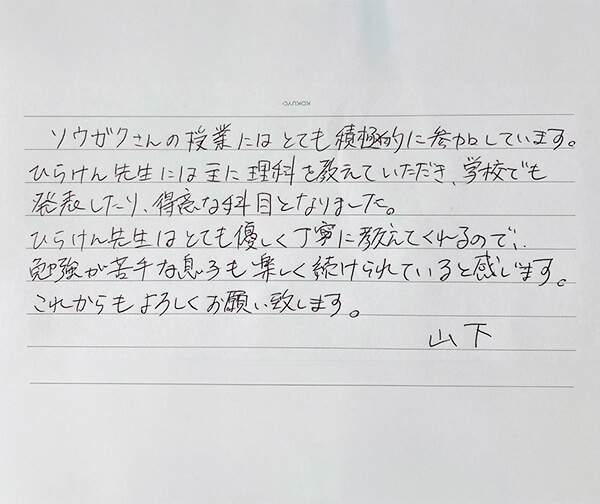 KOKUYO
ソウガクさんの授業にはとても積極的に参加しています。
ひらけん先生には主に理科を教えていただき、学校でも
発表したり、得意な科目となりました。
ひらけん先生はとても優しく丁寧に教えてくれるので、
勉強が苦手な息子も楽しく続けられていると感じます。
これからもよろしくお願い致します。
山下